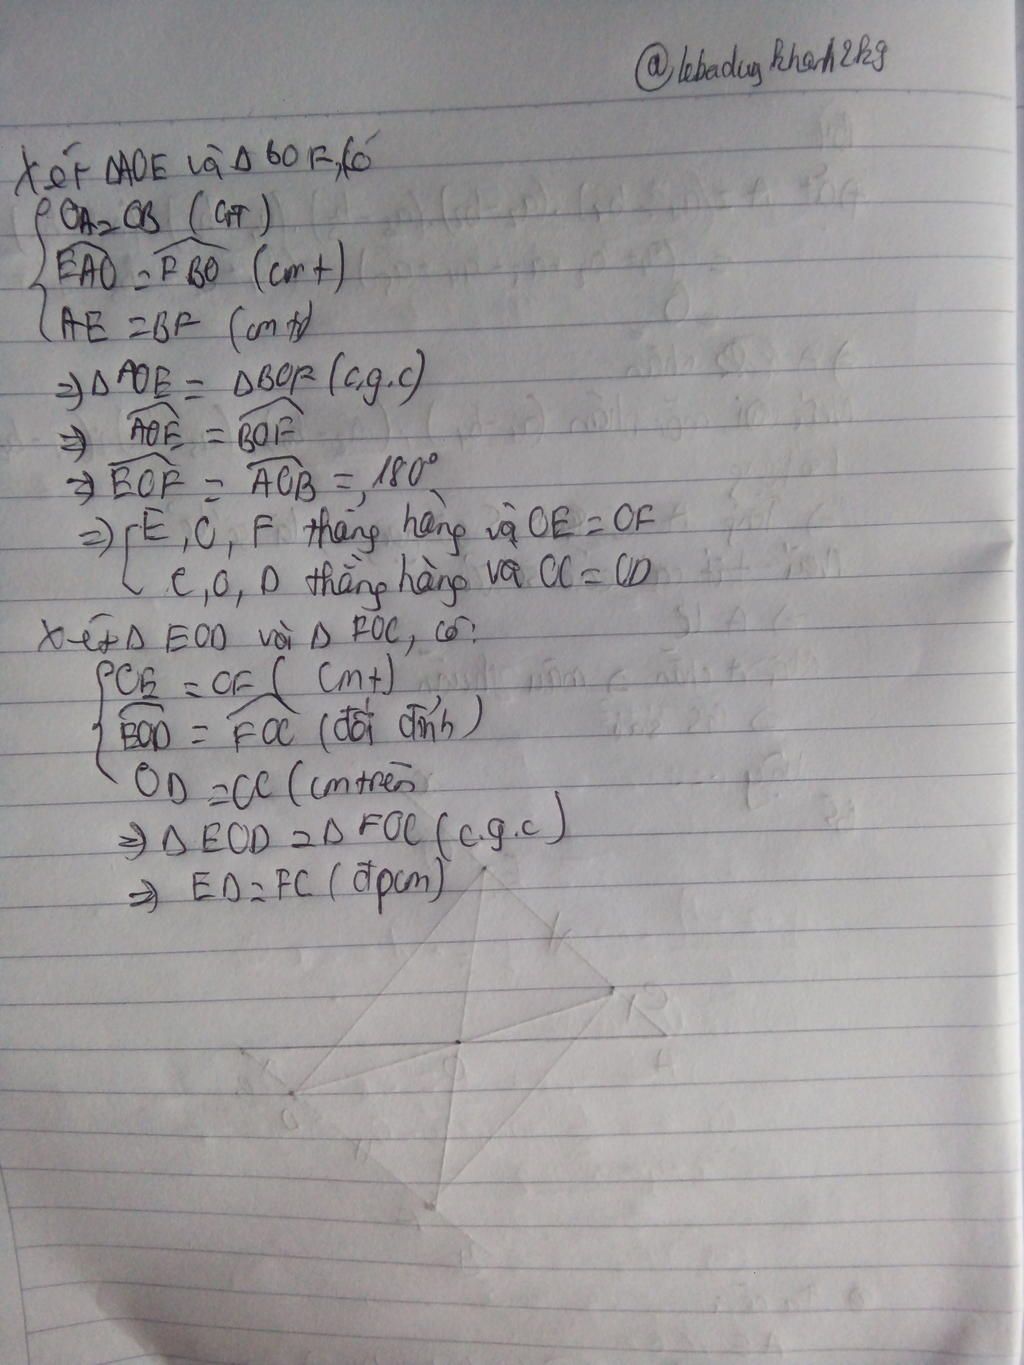 @lebaduykhanh2kg
Xét ΔAOE và ΔBOF, có
OA = OB (GT)
EAO = FBO (cmt)
AE = BF (cmt)
=> ΔAOE = ΔBOF (c.g.c)
=> AOE = BOF
=> EOF = AOB = 180°
=> E, O, F thẳng hàng và OE = OF
C, O, D thẳng hàng và OC = OD
Xét Δ EOD và Δ FOC, có:
OE = OF ( cmt)
EOD = FOC (đối đỉnh)
OD = OC (cm trên
=> Δ EOD = Δ FOC (c.g.c)
=> ED = FC (đpcm)